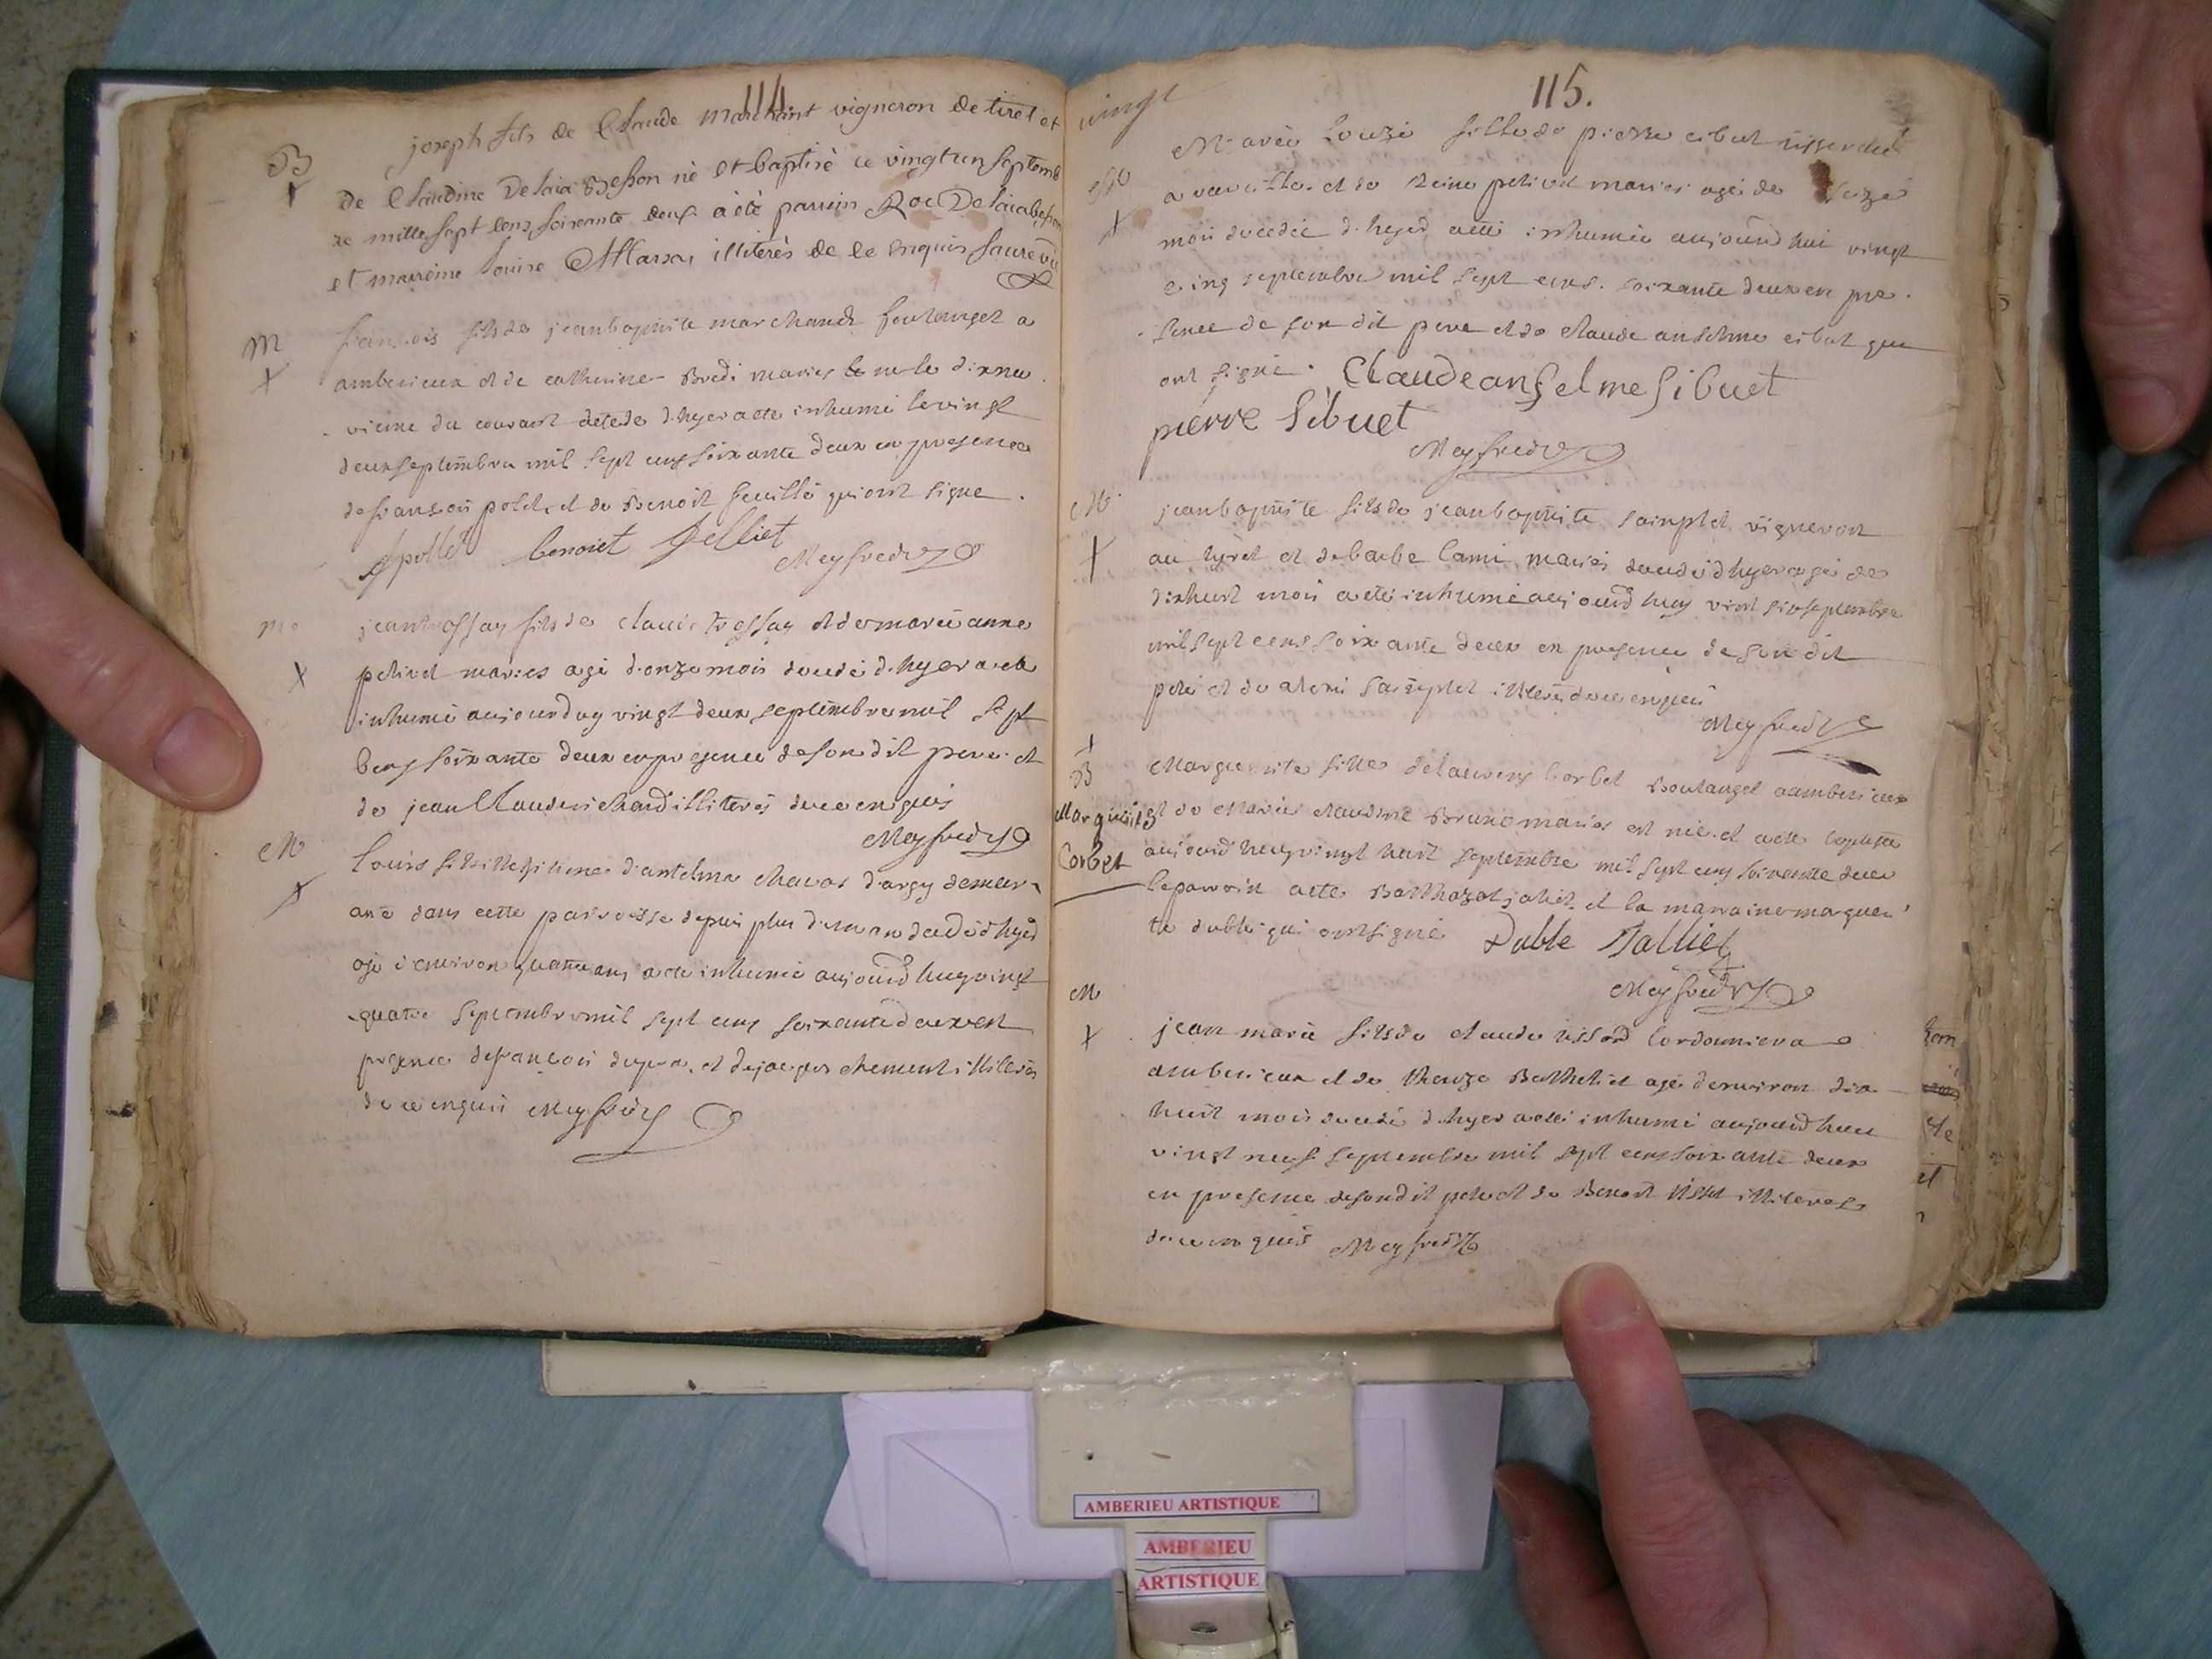 114
B
joseph fils de Claude marchant vigneron de tiret et
de Claudine Delaia Besson né et baptisé ce vingt un septemb
re mille sept cens soixante deux a été parrein Roc Delaiabesson
et marreine Louise illiterés de ce enquis
M
francois fils de jeanbaptiste marchand boulanger a
amberieux et de catherine Bredi maries ne le dixneu
vieme du courant decede d'hyer a ete inhumé le vingt
deux septembre mil sept cens soixante deux en presence
de francois polet et de Benoit qui ont signe.
Apollet benoiet Jelliet
Meyfredy
m
jean trossay fils de claude trossay et de marie anne
petivet maries agé d'onze mois decedé d'hyer a ete
inhumé aujourduy vingt deux septembre mil sept
cens soixante deux en presence de son dit pere et
de jean Claude richard illiterés de ce enquis
Meyfredy
M
louis fils illegitime d'antelme chavas d'argy demeur
ant dans cette parroisse depuis plus d'un an decedé d'hyer
agé d'environ quatre ans a ete inhumé aujourd'huy vingt
quatre septembre mil sept cens soixante deux en
presence de francois dupra et de jacques chement illiterés
de ce enquis Meyfredy
115.
vingt
Marie Louise fille de pierre cibuet tisserand
a vareille et de Reine petivet maries agée de seize
mois decedée d'hyer a été inhumée aujourd'hui vingt
cinq septembre mil sept cens soixante deux en pre
sence de son dit pere et de claude anselme cibuet qui
ont signé. Claude anselme Sibuet
pierre Sibuet
Meyfredy
M
jeanbaptiste fils de jeanbaptiste vigneron
au tyret et de barbe lami maries decedé d'hyer agé de
dixhuit mois a eté inhumé aujourd'huy vint six septembre
mil sept cens soixante deux en presence de son dit
pere et de illiterés de ce enquis
Meyfredy
B
Marguerite fille de laurens corbet Boulanger a amberieux
Marguerite et de Marie claudine Bruno maries est née et a ete baptisée
Corbet
aujourd'huy vingt huit septembre mil sept cens soixante deux
le parrein a ete Balthazar jaliet et la marraine margueri
te duble qui ont signé Duble Jalliet
Meyfredy
M
jean marie fils de claude tissot cordonnier a
amberieux et de therese Berthelier agé d'environ dix
huit mois decedé d'hyer a eté inhumé aujourd'huy
vingt neuf septembre mil sept cens soixante deux
en presence de son dit pere et de Benoit tissot illiterés
de ce enquis Meyfredy
et
AMBERIEU ARTISTIQUE
AMBERIEU
ARTISTIQUE